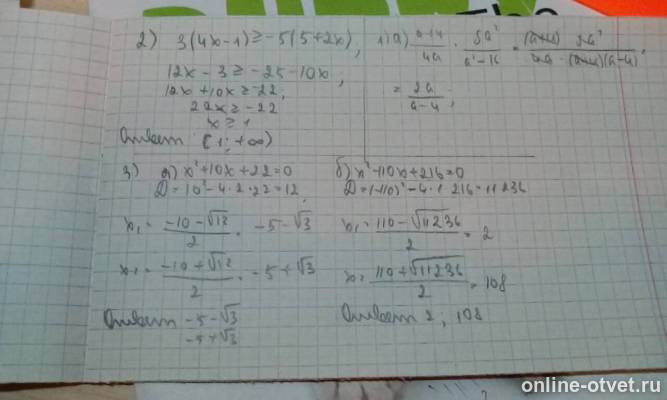 2) 3(4x-1) ≥ -5(5+2x),
12x - 3 ≥ -25 - 10x,
12x + 10x ≥ -22;
22x ≥ -22
x ≥ 1
Ответ [1; +∞)
1) а) (a+4)/4a · 8a²/(a²-16) = (a+4) 8a²/4a·(a+4)(a-4) =
= 2a/(a-4);
3) а) x²+10x+22=0
D = 10²-4·1·22=12,
x₁ = (-10-√12)/2 = -5-√3
x₁ = (-10+√12)/2 = -5+√3
Ответ -5-√3
-5+√3
б) x²-110x+216=0
D=(-110)²-4·1·216=11236
x₁ = (110-√11236)/2 = 2
x = (110+√11236)/2 = 108
Ответ 2; 108
online-otvet.ru